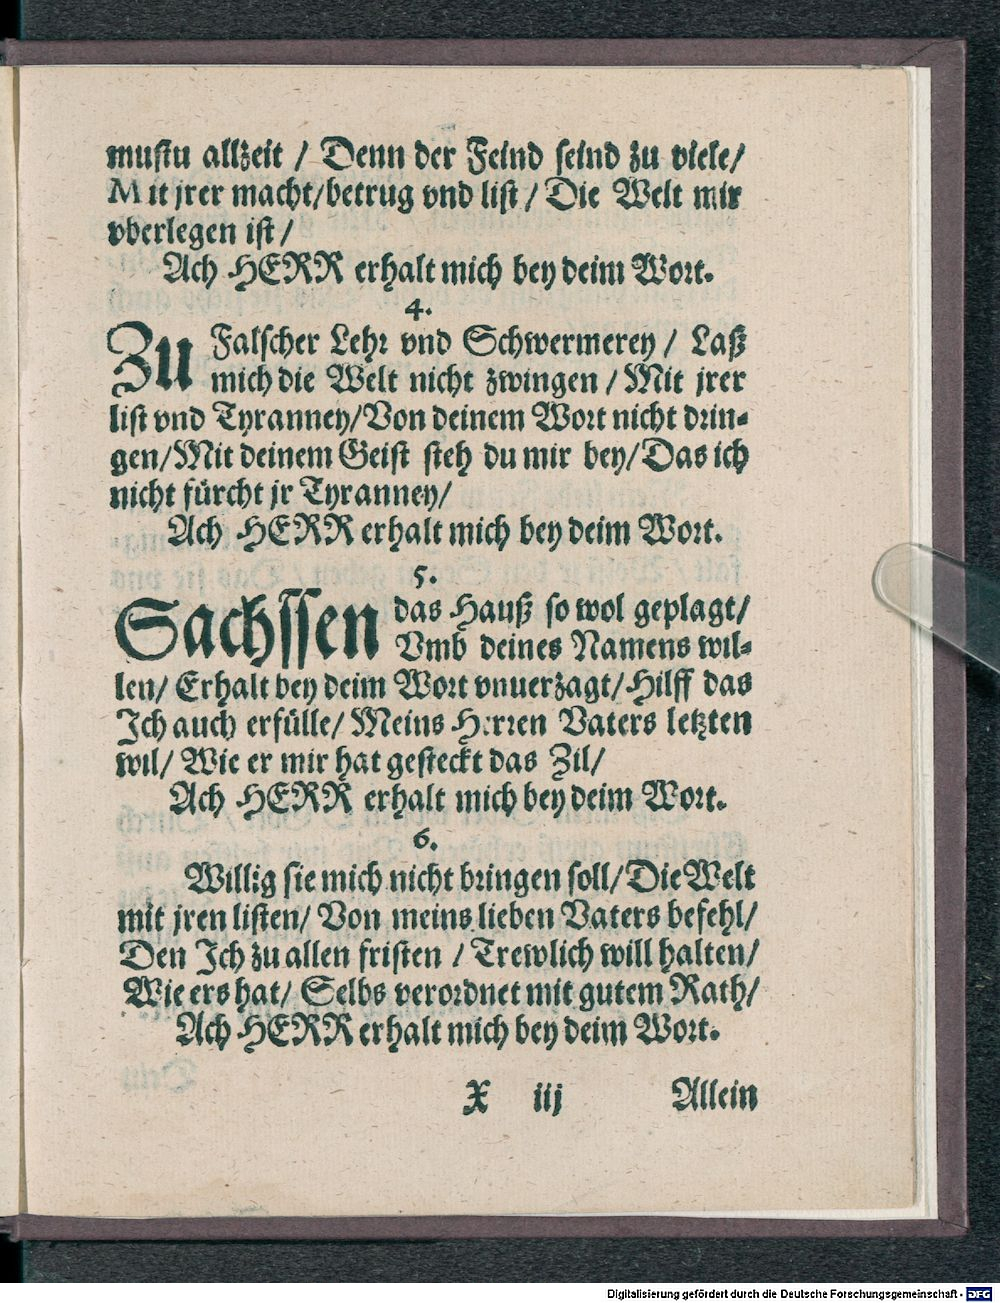 mustu allzeit / Denn der Feind seind zu viele/
Mit jrer macht/betrug vnd list / Die Welt mir
vberlegen ist /
Ach HERR erhalt mich bey deim Wort.
4.
Zu Falscher Lehr vnd Schwermerey / Laß
mich die Welt nicht zwingen / Mit jrer
list vnd Tyranney/Von deinem Wort nicht drin-
gen/Mit deinem Geist steh du mir bey/Das ich
nicht fürcht jr Tyranney/
Ach HERR erhalt mich bey deim Wort.
5.
Sachssen das Hauß so wol geplagt/
Vmb deines Namens wil-
len/ Erhalt bey deim Wort vnuerzagt/Hilff das
Ich auch erfülle/ Meins Herren Vaters letzten
wil/ Wie er mir hat gesteckt das Zil/
Ach HERR erhalt mich bey deim Wort.
6.
Willig sie mich nicht bringen soll/Die Welt
mit jren listen/ Von meins lieben Vaters befehl/
Den Ich zu allen fristen / Trewlich will halten/
Wie ers hat/ Selbs verordnet mit gutem Rath/
Ach HERR erhalt mich bey deim Wort.
X iij Allein
Digitalisierung gefördert durch die Deutsche Forschungsgemeinschaft - DFG